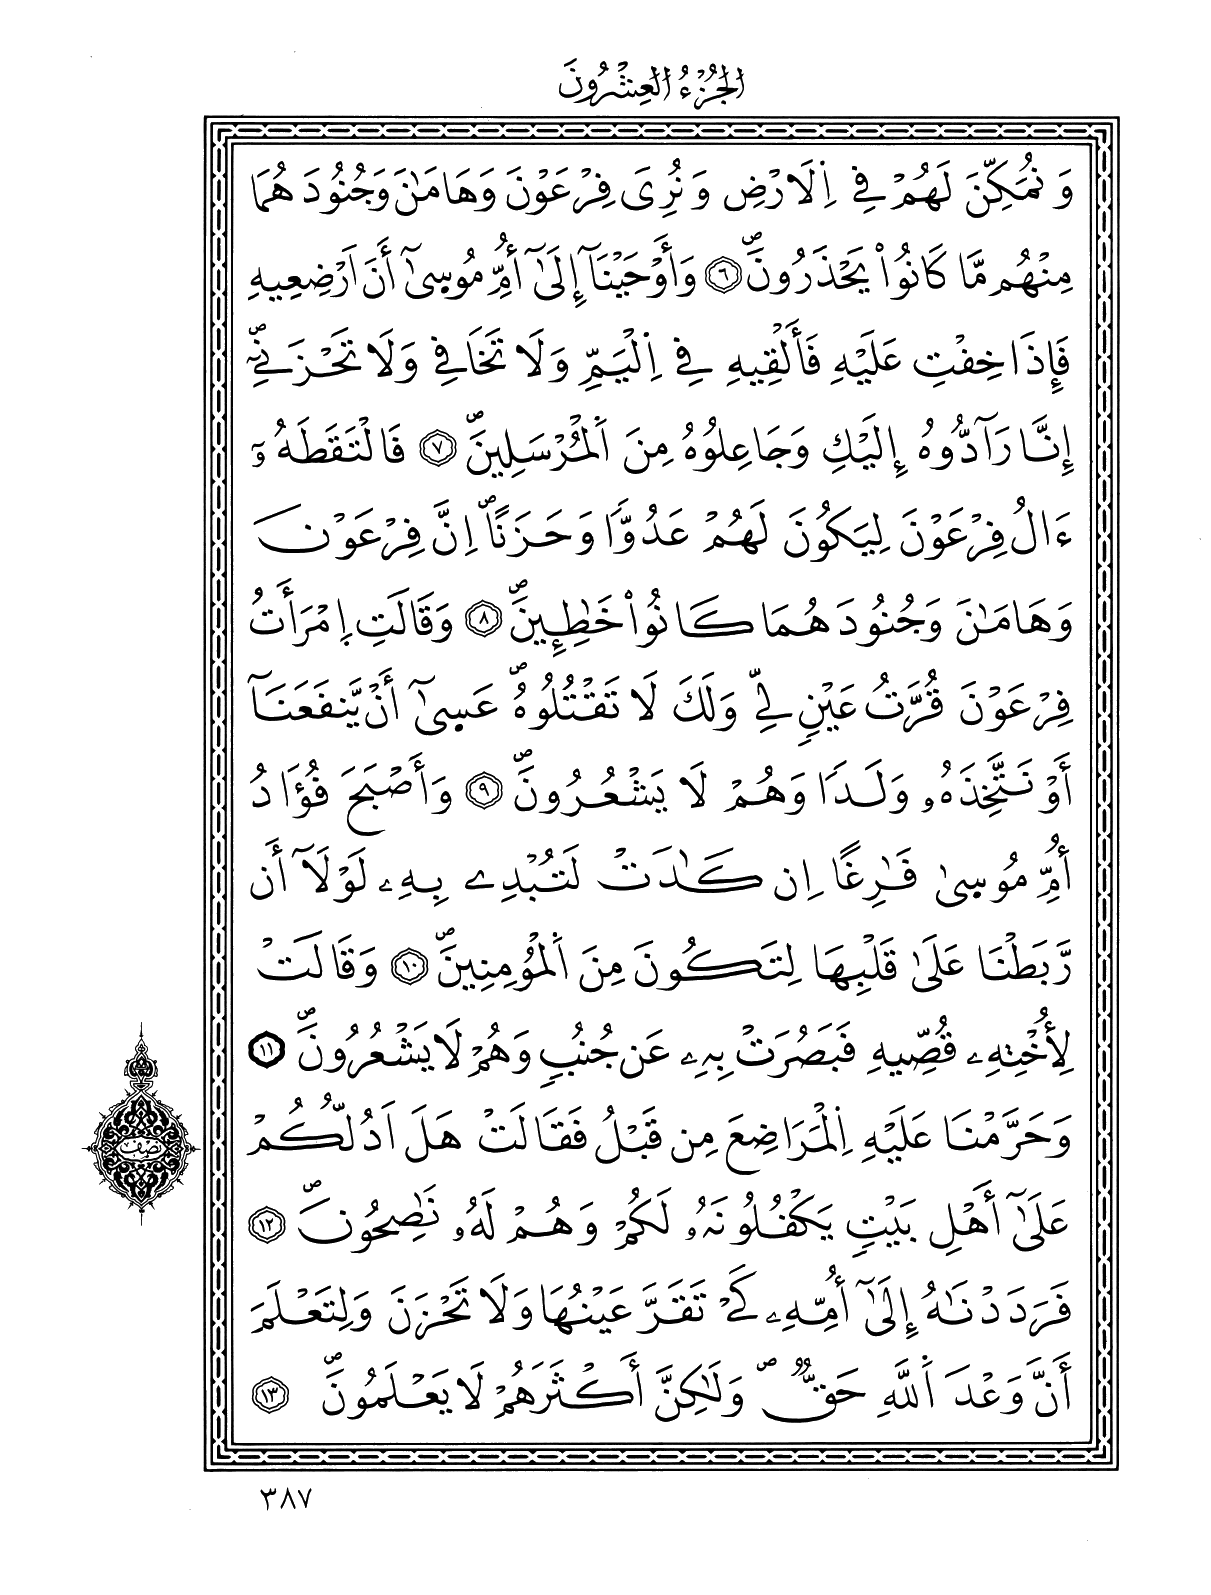 الجُزْءُ العِشْرُونَ
وَنُمَكِّنَ لَهُمْ فِي اِ۬لَارْضِ وَنُرِيَ فِرْعَوْنَ وَهَامَٰنَ وَجُنُودَهُمَا
مِنْهُم مَّا كَانُواْ يَحْذَرُونَۖ ٦ وَأَوْحَيْنَآ إِلَىٰٓ أُمِّ مُوس۪ىٰٓ أَنَ اَرْضِعِيهِ
فَإِذَا خِفْتِ عَلَيْهِ فَأَلْقِيهِ فِي اِ۬لْيَمِّ وَلَا تَخَافِي وَلَا تَحْزَنِيۖ
إِنَّا رَآدُّوهُ إِلَيْكِ وَجَاعِلُوهُ مِنَ اَ۬لْمُرْسَلِينَۖ ٧ فَالْتَقَطَهُۥٓ
ءَالُ فِرْعَوْنَ لِيَكُونَ لَهُمْ عَدُوّٗا وَحَزَناًۖ اِنَّ فِرْعَوْنَ
وَهَامَٰنَ وَجُنُودَهُمَا كَانُواْ خَٰطِـِٕينَۖ ٨ وَقَالَتِ إِ۪مْرَأَتُ
فِرْعَوْنَ قُرَّتُ عَيْنٖ لِّي وَلَكَ لَا تَقْتُلُوهُۖ عَس۪ىٰٓ أَنْ يَّنفَعَنَآ
أَوْ نَتَّخِذَهُۥ وَلَدٗا وَهُمْ لَا يَشْعُرُونَۖ ٩ وَأَصْبَحَ فُؤَادُ
أُمِّ مُوس۪ىٰ فَٰرِغاً اِن كَٰدَتْ لَتُبْدِے بِهِۦ لَوْلَآ أَن
رَّبَطْنَا عَلَىٰ قَلْبِهَا لِتَكُونَ مِنَ اَ۬لْمُؤْمِنِينَۖ ١٠ وَقَالَتْ
لِأُخْتِهِۦ قُصِّيهِ فَبَصُرَتْ بِهِۦ عَن جُنُبٖ وَهُمْ لَا يَشْعُرُونَۖ ١١
وَحَرَّمْنَا عَلَيْهِ اِ۬لْمَرَاضِعَ مِن قَبْلُ فَقَالَتْ هَلَ اَدُلُّكُمْ
عَلَىٰٓ أَهْلِ بَيْتٖ يَكْفُلُونَهُۥ لَكُمْ وَهُمْ لَهُۥ نَٰصِحُونَۖ ١٢
فَرَدَدْنَٰهُ إِلَىٰٓ أُمِّهِۦ كَےْ تَقَرَّ عَيْنُهَا وَلَا تَحْزَنَ وَلِتَعْلَمَ
أَنَّ وَعْدَ اَ۬للَّهِ حَقّٞۖ وَلَٰكِنَّ أَكْثَرَهُمْ لَا يَعْلَمُونَۖ ١٣
نصف
٣٨٧